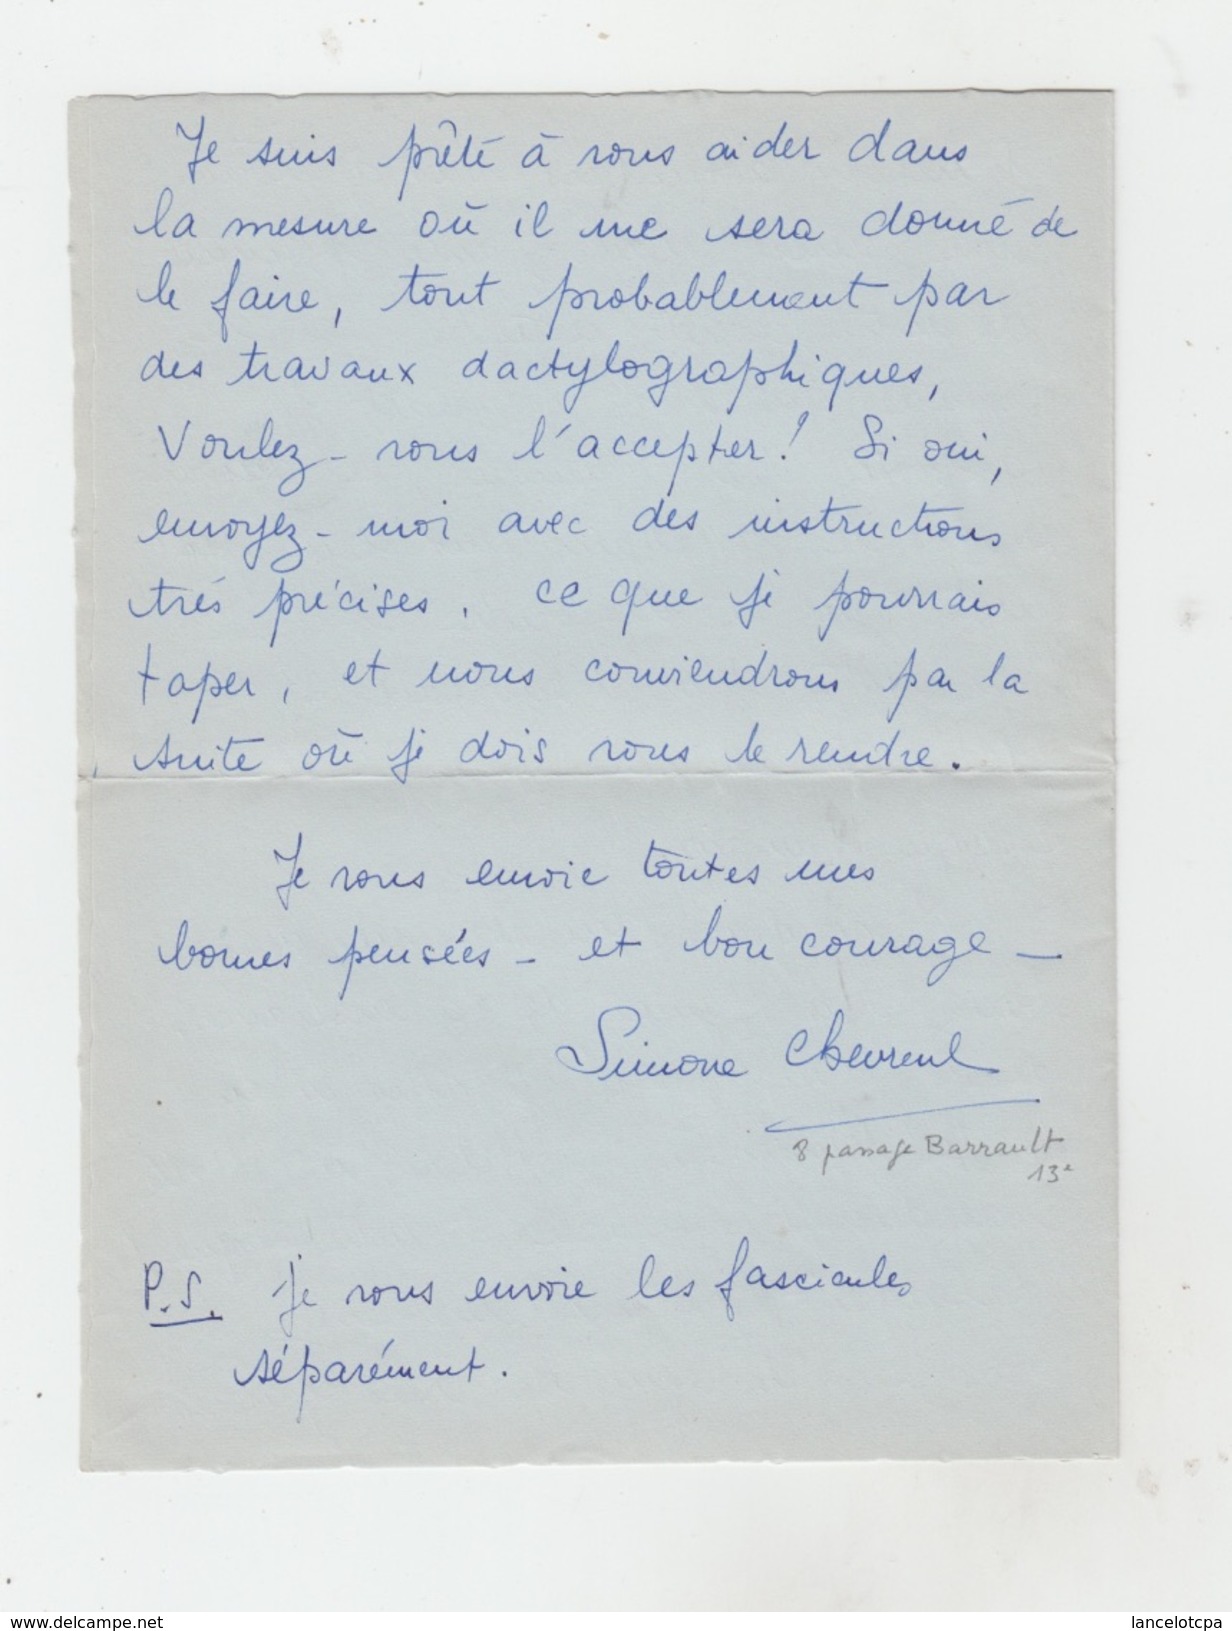 Je suis prête à vous aider dans
la mesure où il me sera donné de
le faire, tout probablement par
des travaux dactylographiques,
Voulez-vous l'accepter? Si oui,
envoyez-moi avec des instructions
très précises, ce que je pourrais
taper, et nous conviendrons par la
suite où je dois vous le rendre.
Je vous envoie toutes mes
bonnes pensées - et bon courage -
Simone Chevreul
8 passage Barrault
13e
P.S. Je vous envoie les fascicules
séparément.
www.delcampe.net
lancelotcpa